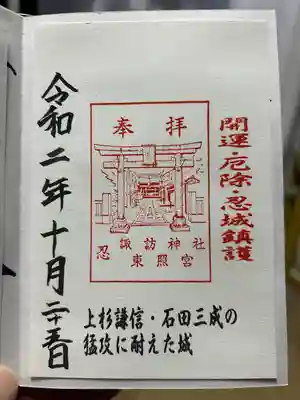 開運・厄除・忍城鎮護
奉拝
忍 諏訪神社
東照宮
令和二年十月二十五日
上杉謙信・石田三成の
猛攻に耐えた城